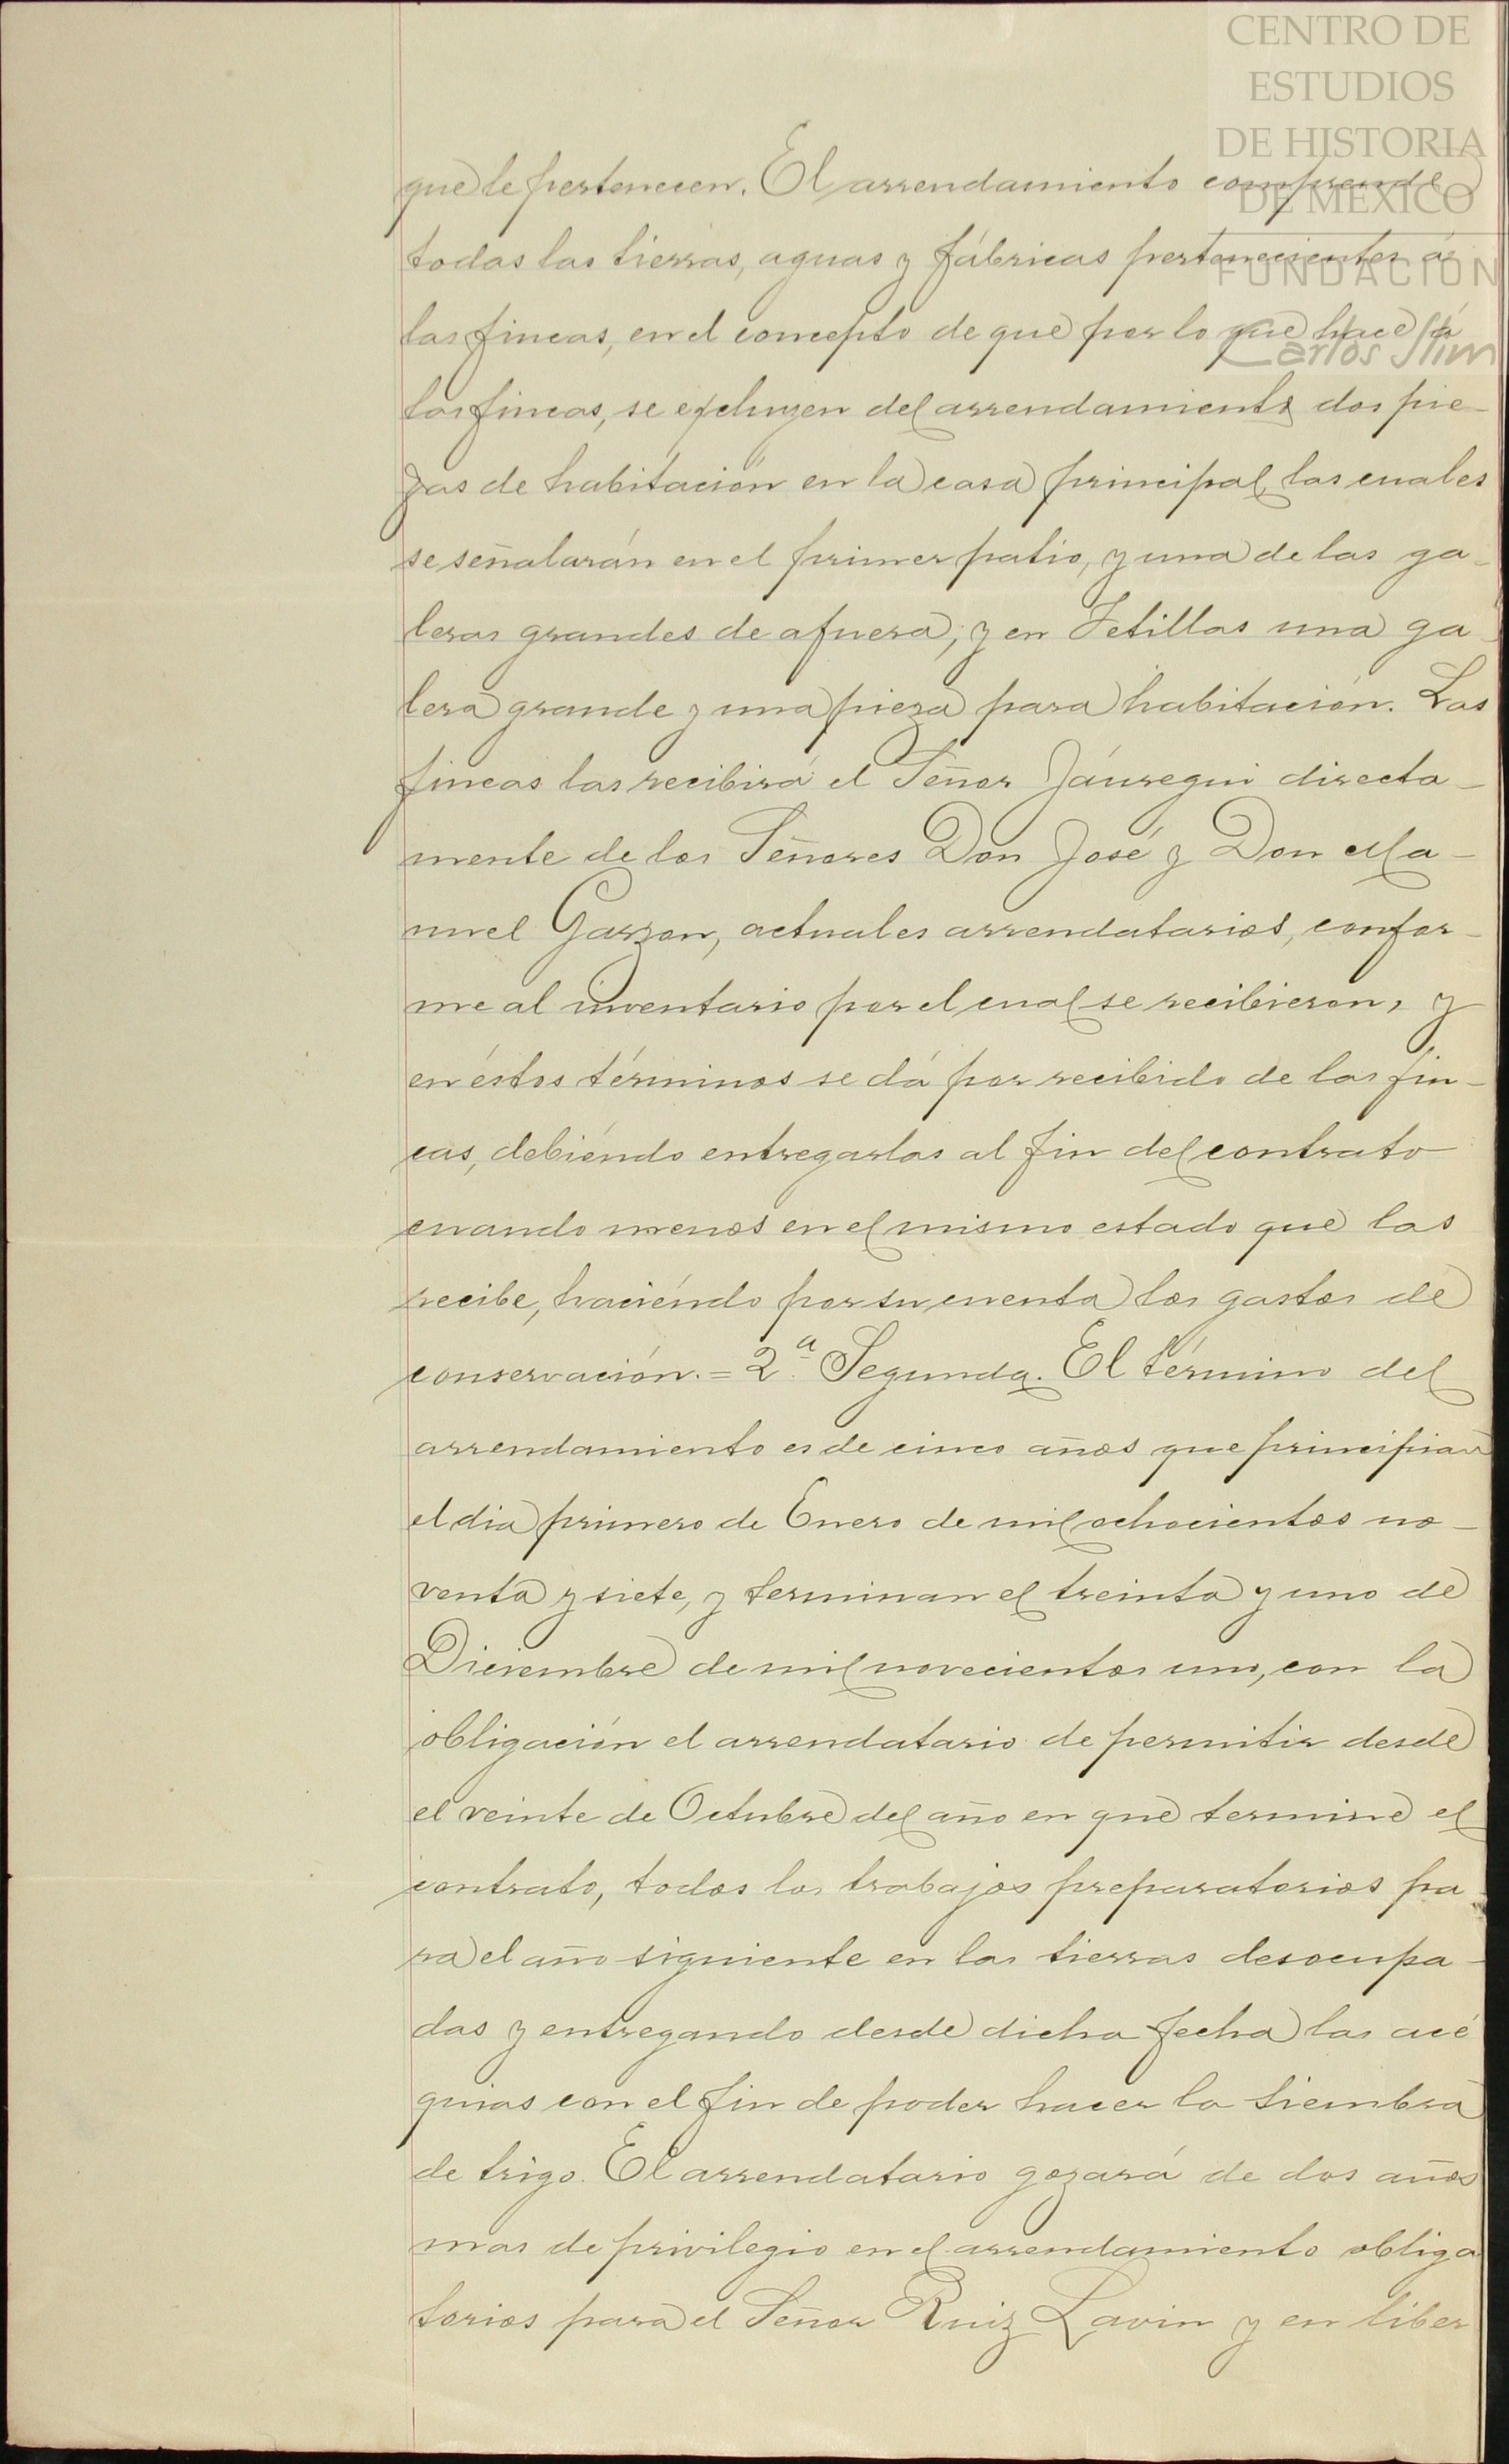 CENTRO DE
ESTUDIOS
DE HISTORIA
DE MEXICO
FUNDACION
Carlos Slim
que le pertenecen. El arrendamiento comprende
todas las tierras, aguas y fábricas pertenecientes á
las fincas, en el concepto de que por lo que hace á
las fincas, se excluyen del arrendamiento dos pie-
zas de habitación en la casa principal, las cuales
se señalarán en el primer patio, y una de las ga-
leras grandes de afuera, y en Tetillas una ga-
lera grande y una pieza para habitación. Las
fincas las recibirá el Señor Jáuregui directa-
mente de los Señores Don José y Don Ma-
nuel Garzon, actuales arrendatarios, confor-
me al inventario por el cual se recibieron, y
en éstos términos se dá por recibido de las fin-
cas, debiéndo entregarlas al fin del contrato
cuando menos en el mismo estado que las
recibe, haciéndo por su cuenta los gastos de
conservación. = 2.ª Segunda. El término del
arrendamiento es de cinco años que principian
el dia primero de Enero de mil ochocientos no-
venta y siete, y terminan el treinta y uno de
Diciembre de mil novecientos uno, con la
obligación el arrendatario de permitir desde
el veinte de Octubre del año en que termine el
contrato, todos los trabajos preparatorios pa-
ra el año siguiente en las tierras desocupa-
das y entregando desde dicha fecha las acé
quias con el fin de poder hacer la siembra
de trigo. El arrendatario gozará de dos años
mas de privilegio en el arrendamiento obliga
torios para el Señor Ruiz Lavin y en liber